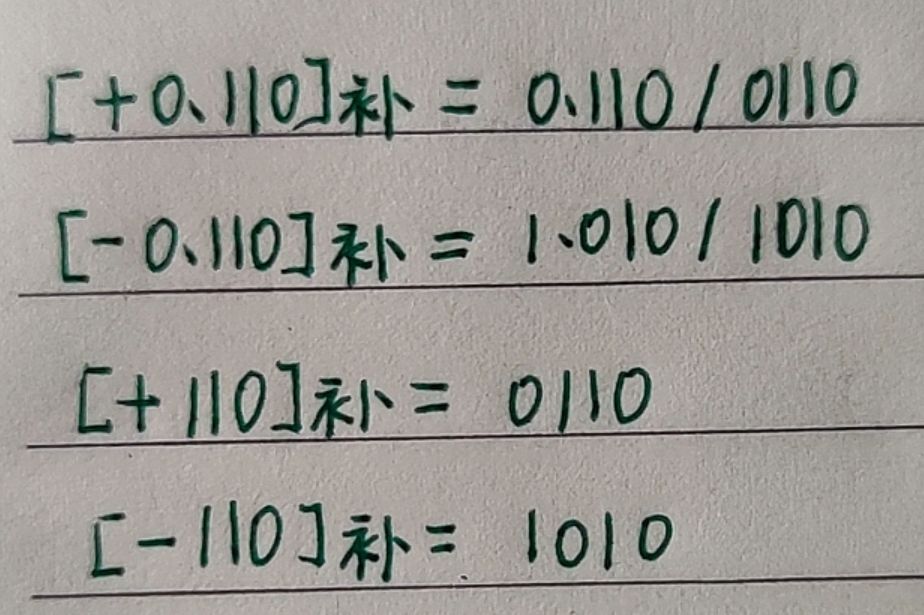 [+0.110]补 = 0.110 / 0110
[-0.110]补 = 1.010 / 1010
[+110]补 = 0110
[-110]补 = 1010